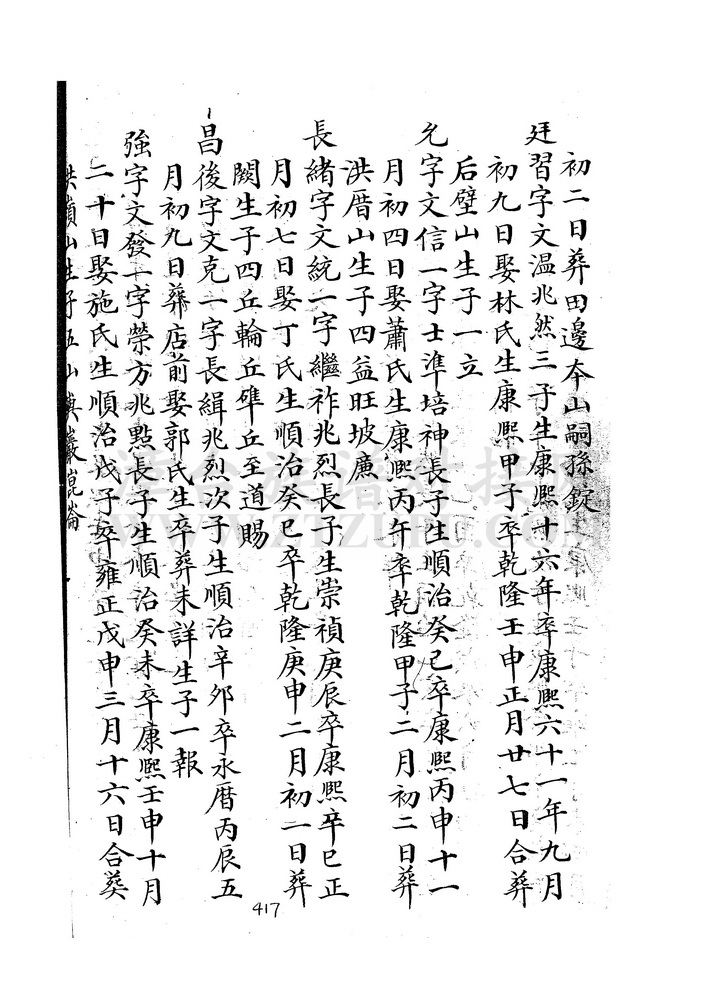 初二日葬田邊本山嗣孫錠
廷習字文温兆然三子生康熙十六年卒康熙六十一年九月
初九日娶林氏生康熙甲子卒乾隆壬申正月廿七日合葬
后壁山生子一立
允字文信一字士準培神長子生順治癸巳卒康熙丙申十一
月初四日娶蕭氏生康熙丙午卒乾隆甲子二月初二日葬
洪厝山生子四益旺坡廉
長緒字文統一字繼祚兆烈長子生崇禎庚辰卒康熙辛巳正
月初七日娶丁氏生順治癸巳卒乾隆庚申二月初一日葬
闕生子四丘輪丘犨丘至道賜
昌後字文克一字長緝兆烈次子生順治辛夘卒永曆丙辰五
月初九日葬店前娶郭氏生卒葬未詳生子一報
強字文發一字榮方兆點長子生順治癸未卒康熙壬申十月
二十日娶施氏生順治戊子卒雍正戊申三月十六日合葵
山生子五山真巖崑崙
417